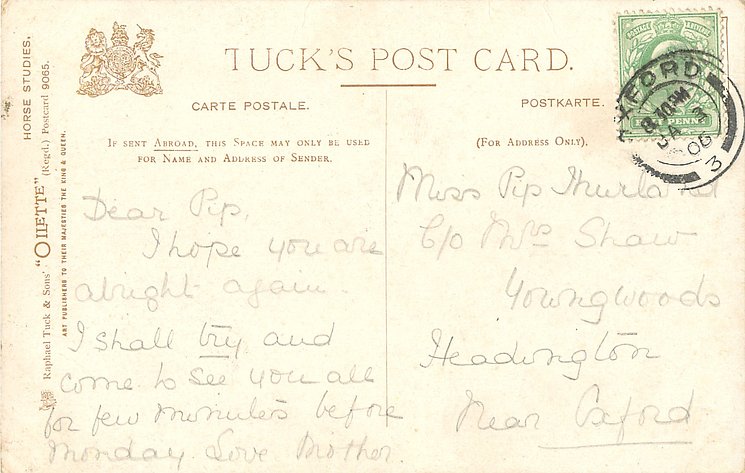 HORSE STUDIES.
Raphael Tuck & Sons' "OILETTE" (Regd.) Postcard 9065.
ART PUBLISHERS TO THEIR MAJESTIES THE KING & QUEEN.
TUCK'S POST CARD.
CARTE POSTALE.
POSTKARTE.
IF SENT ABROAD, THIS SPACE MAY ONLY BE USED
FOR NAME AND ADDRESS OF SENDER.
(FOR ADDRESS ONLY).
Dear Pip,
I hope you are
alright again.
I shall try and
come to see you all
for few minutes before
Monday. Love Mother.
Miss Pip
C/o Mrs Shaw
Youngwoods
Headington
Near Oxford
POSTAGE
HALFPENNY
OXFORD
8.10PM
06
3